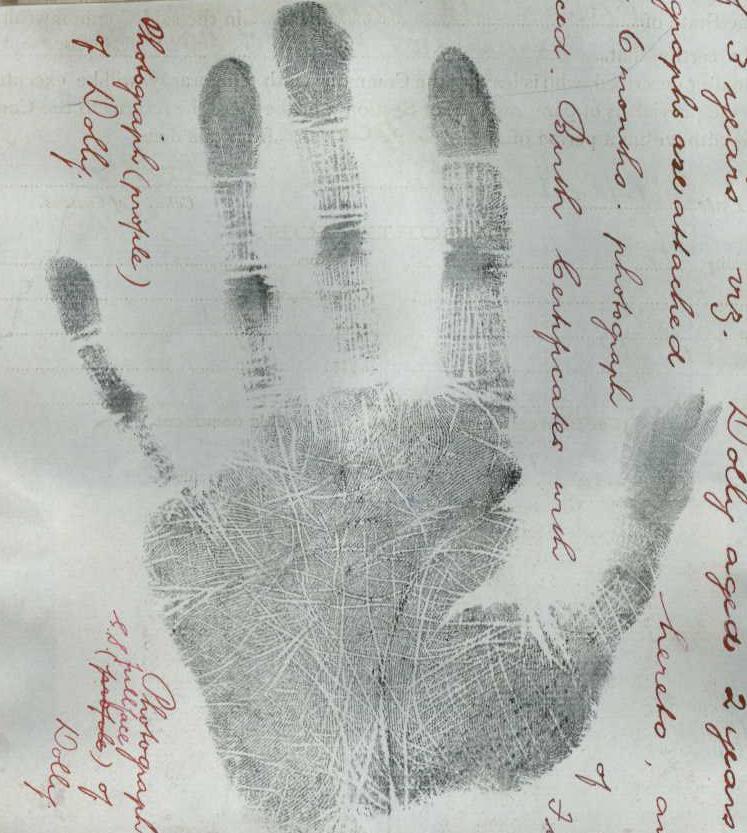 3 years viz. Dolly aged 2 years
graphs are attached hereto, an
6 months. photograph of
ced. Birth Certificates with
Photograph (profile)
of Dolly.
Photograph
full face
(profile) of
Dolly.